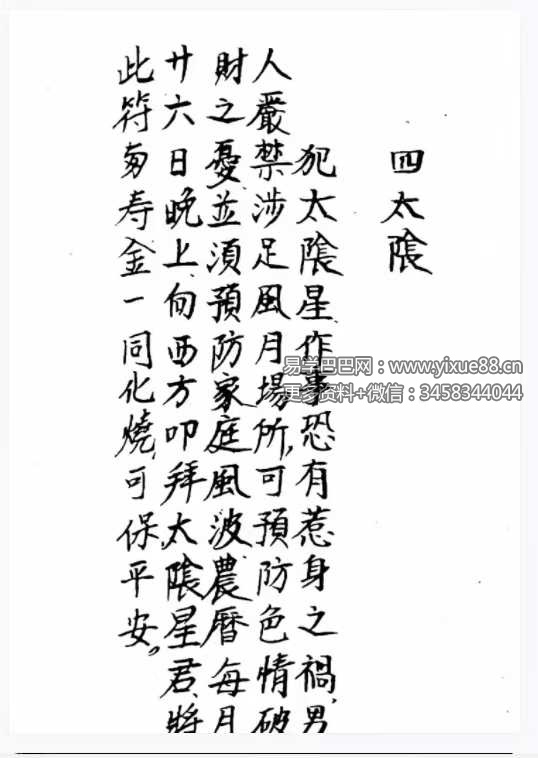 四太陰
犯太陰星作事恐有惹身之禍,男
人嚴禁涉足風月場所,可預防色情破
財之憂並須預防家庭風波農暦每月
廿六日晚上向西方叩拜太陰星君,將
此符寿金一同化燒,可保平安。
易学巴巴网：www.yixue88.cn
更多资料+微信：3458344044